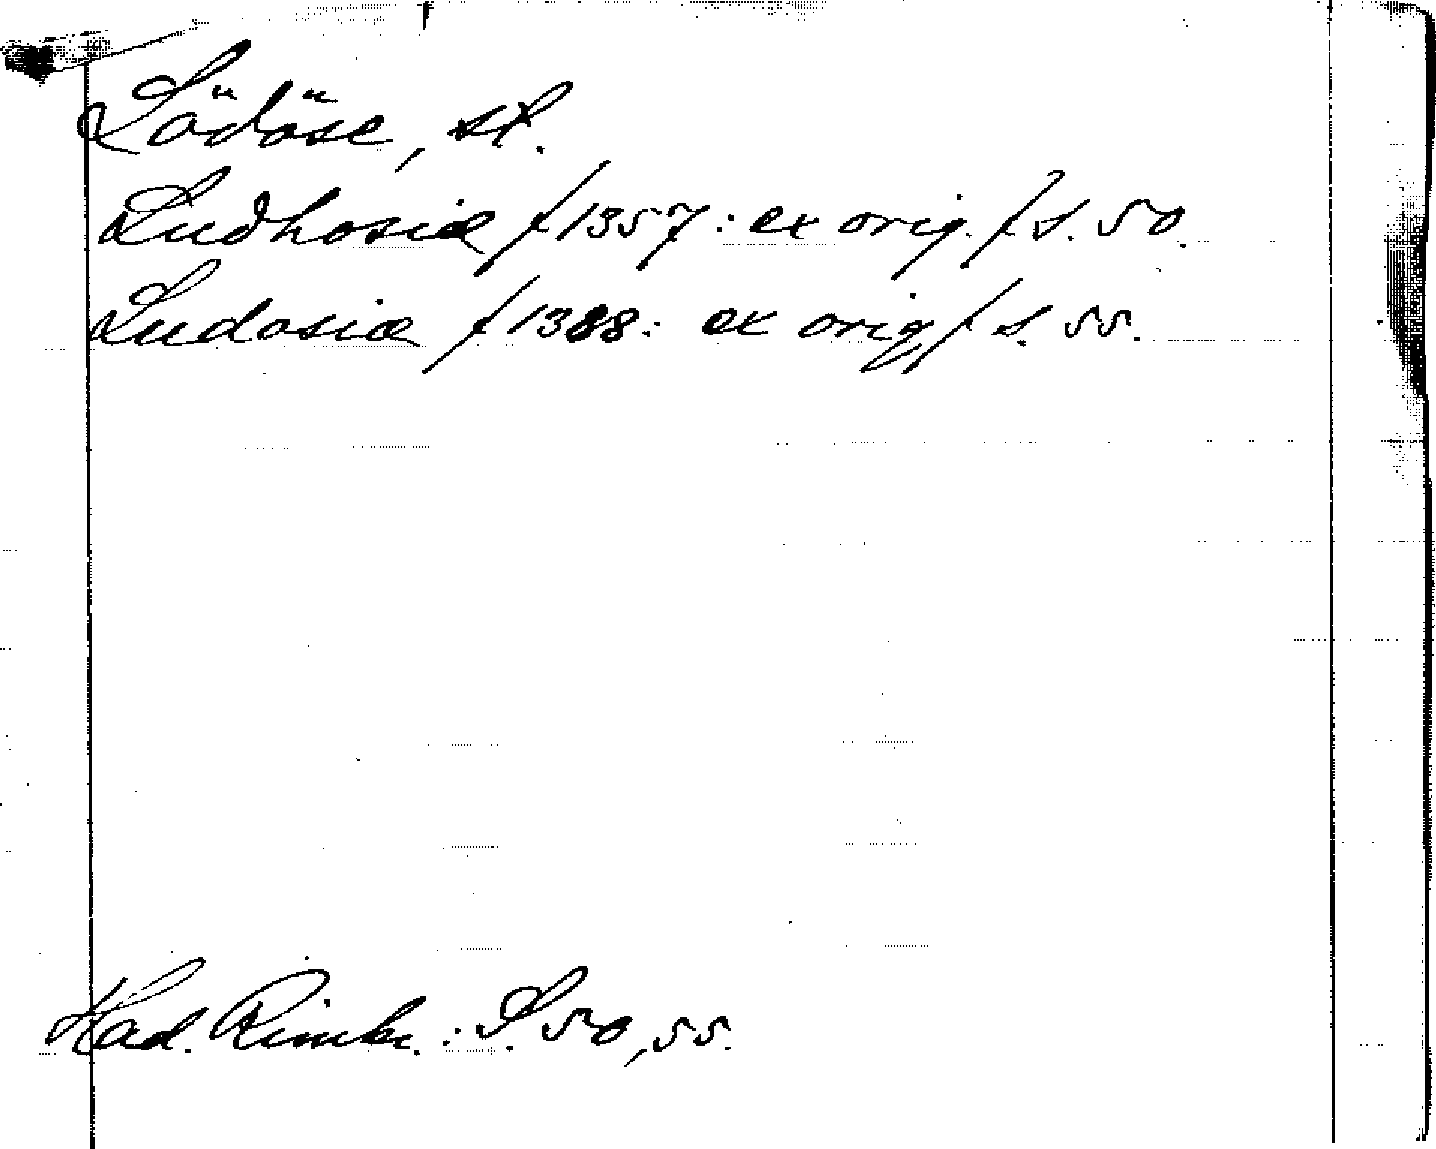 Lödöse, st.
Ludhosiæ /1357: ex orig./ s. 50.
Ludosiæ /1388: ex orig/ s. 55.
Had. Rimkr. : S. 50, 55.